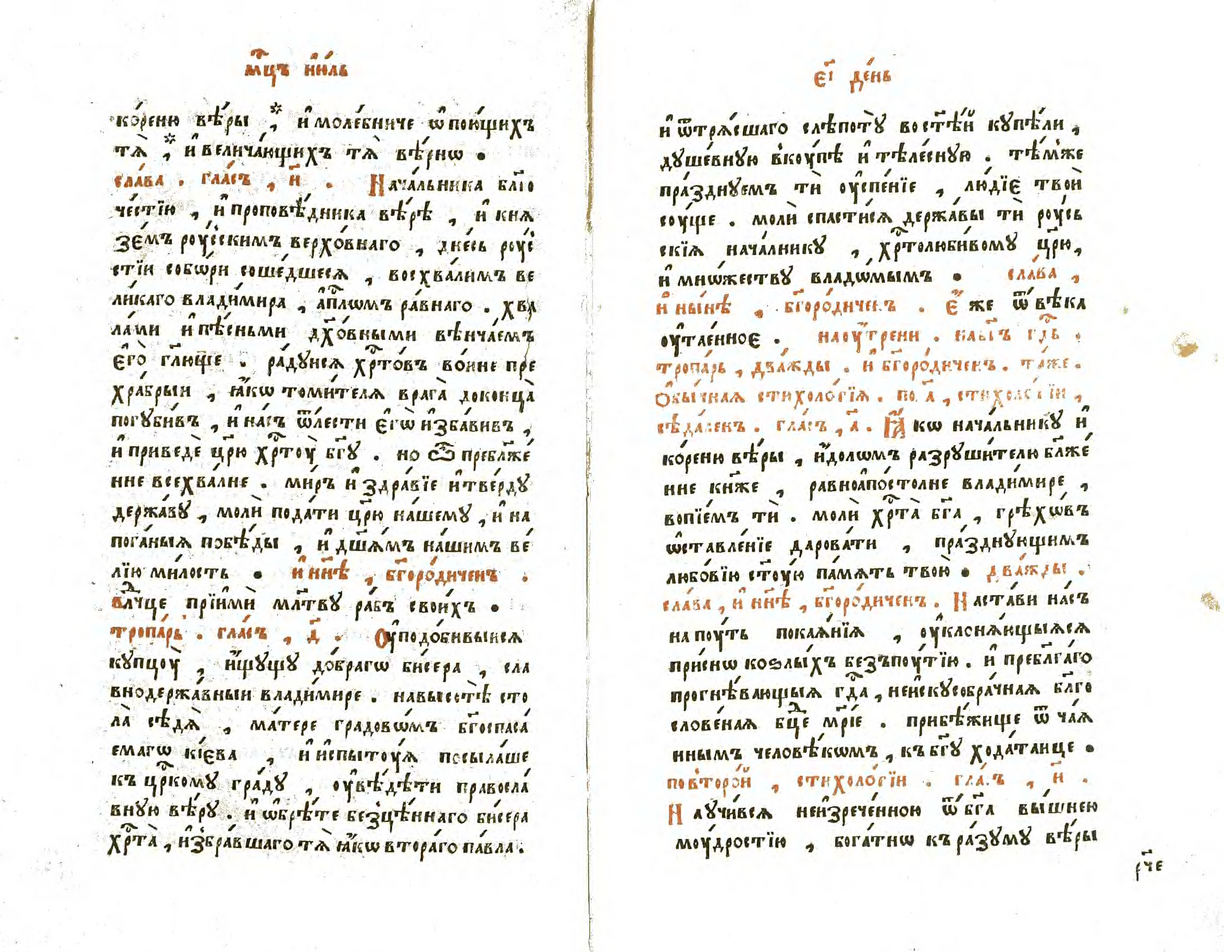 мⷭ҇цъ ию́ль
ко́реню вѣ́ры ҂ и҆ моле́бниче ѡ҆ пою́щихъ
тѧ̀ ҂ и҆ велича́ющихъ тѧ̀ вѣ́рнѡ .
сла́ва . гла́съ , и҃ . Нача́льника бл҃го
че́стїю , и҆ проповѣ́дника вѣ́рѣ , и҆ кнѧ
зе́мъ роу́сскимъ верхо́внаго , дне́сь роу́с
стїи собо́ри соше́дшесѧ , восхва́лимъ ве
ли́каго влади́мира , а҆пⷭ҇лѡмъ ра́внаго . хва
ла́ми и҆ пѣ́сньми дх҃о́вными вѣнча́емъ
є҆го̀ гл҃юще . ра́дуисѧ хрⷭ҇то́въ во́ине пре
хра́брыи , ꙗ҆́кѡ томи́телѧ врага̀ доконца̀
погуби́въ , и҆ на́съ ѿ ле́сти є҆гѡ̀ и҆зба́вивъ ,
и҆ приведѐ цр҃ю хрⷭ҇тоу̀ бг҃ꙋ . но ѽ пребла́же
нне всехва́лне . ми́ръ и҆ здра́вїе и҆ тве́рдꙋ
держа́вꙋ , молѝ пода́ти цр҃ю̀ на́шемꙋ , и҆ на
пога́ныѧ побѣ́ды , и҆ дш҃а́мъ на́шим ве́
лїю ми́лость . и҆ нн҃ѣ , бг҃оро́диченъ .
влⷣчце прїимѝ мл҃твꙋ ра́бъ свои́хъ .
тропа́рь . гла́съ , д҃ . Оу҆подо́бивыисѧ
купцоу̀ , и҆́щꙋщꙋ до́брагѡ би́сера , сла
внодержа́вныи влади́мире . на высотѣ̀ сто
ла̀ сѣдѧ̀ , ма́тере градовѡ́мъ бг҃оспаса́
емагѡ кі́ева , и҆ и҆спытоу́ѧ посыла́ше
къ црⷭ҇комꙋ гра́дꙋ , оу҆вѣ́дѣти правосла́
вную вѣ́рꙋ . и҆ ѡ҆брѣ́те безцѣ́ннаго би́сера
хрⷭ҇та̀ , и҆збра́вшаго тѧ̀ ꙗ҆́кѡ втора́го па́вла .
є҃і де́нь
и҆ ѿтрѧ́сшаго слѣпотꙋ̀ во ст҃ѣ́й кꙋпѣ́ли ,
дꙋше́вную вкоу́пѣ и҆ тѣле́сную . тѣ́мже
пра́зднꙋемъ тѝ оу҆спе́нїе , лю́дїє твоѝ
соу́ще . молѝ спасти́сѧ держа́вы тѝ роу́сь
скїѧ нача́лникꙋ , хрⷭ҇толюби́вомꙋ цр҃ю̀ ,
и҆ мно́жествꙋ владѡ́мымъ . сла́ва ,
и҆ ны́нѣ , бг҃оро́диченъ . Є҆́же ѿ вѣ́ка
оу҆тае́нноє . на оу҆́трени . на б҃ъ гдⷭ҇ь .
тропа́рь , два́жды . и҆ бг҃оро́диченъ . та́же .
Обы́чнаѧ стихоло́гїѧ . по , а҃ , стихоло́гїи ,
сѣда́ленъ . гла́съ , а҃ . Ꙗ҆́кѡ нача́льникꙋ и҆
ко́реню вѣ́ры , и҆́долѡмъ разрꙋши́телю бл҃же
нне кнѧ́же , равноапо́столне влади́мире ,
вопїе́мъ тѝ . молѝ хрⷭ҇та̀ бг҃а , грѣхѡ́въ
ѡ҆ставле́нїе дарова́ти , пра́зднꙋющимъ
любо́вїю ст҃оу́ю па́мѧть твою̀ . два́жды .
сла́ва , и҆ нн҃ѣ , бг҃оро́диченъ . Наста́ви на́съ
на поу́ть покаѧ́нїѧ , оу҆клонѧ́ющыѧсѧ
при́снѡ ко ѕлы́хъ безъпоу́тїю . и҆ пребл҃га́го
прогнѣ́вающыѧ гдⷭ҇а , неи҆скꙋсобра́чнаѧ бл҃го
слове́наѧ бцⷣе мр҃і́е . прибѣ́жище ѿчаѧ́
ннымъ человѣ́кѡмъ , къ бг҃ꙋ хода́таице .
по второ́й , стихоло́гїи . гла́съ , и҃ .
Наꙋчи́всѧ неи҆зрече́нною ѿ бг҃а вы́шнею
моу́дростїю , бога́тнѡ къ ра́зꙋмꙋ вѣ́ры
рч҃е